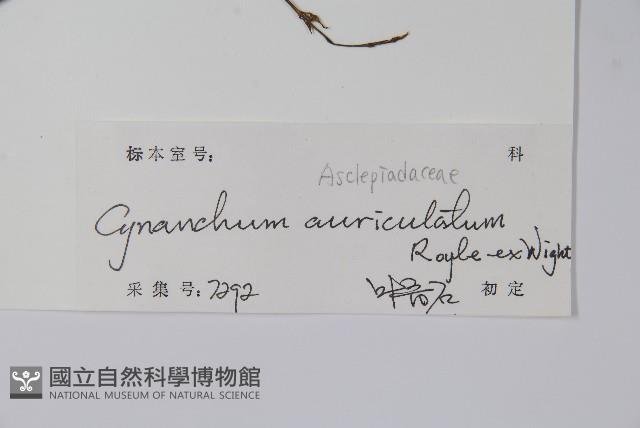 标本室号: 科
Asclepiadaceae
Cynanchum auriculatum
Royle ex Wight
采集号: 7292 初定
國立自然科學博物館
NATIONAL MUSEUM OF NATURAL SCIENCE